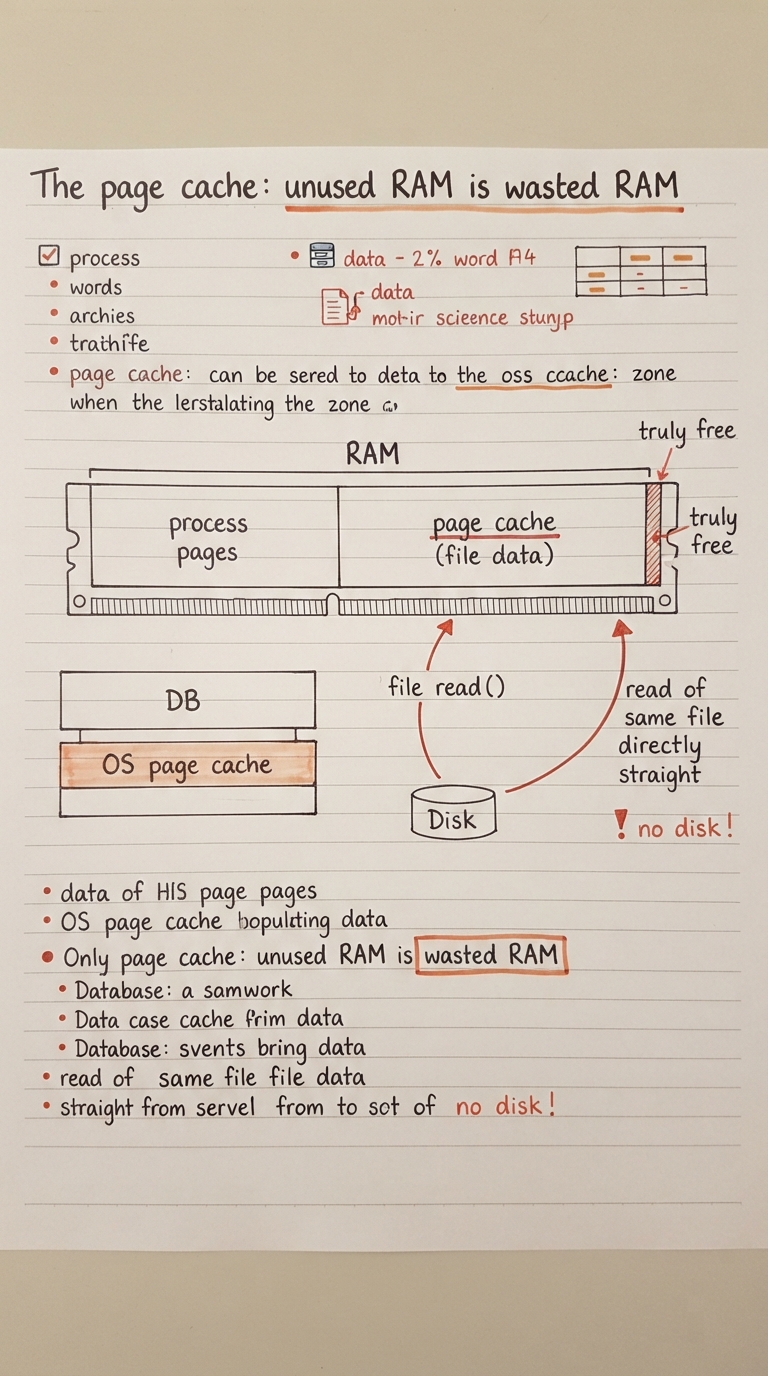 The page cache: unused RAM is wasted RAM
process
words
archies
trathife
data - 2% word A4
data
mot-ir scieence stunp
page cache: can be sered to deta to the oss ccache: zone
when the lerstalating the zone
RAM
truly free
process
pages
page cache
(file data)
truly
free
file read()
read of
same file
directly
straight
DB
OS page cache
Disk
! no disk!
data of HIS page pages
OS page cache bopulcting data
Only page cache: unused RAM is wasted RAM
Database: a samwork
Data case cache frim data
Database: svents bring data
read of same file file data
straight from servel from to sot of no disk!